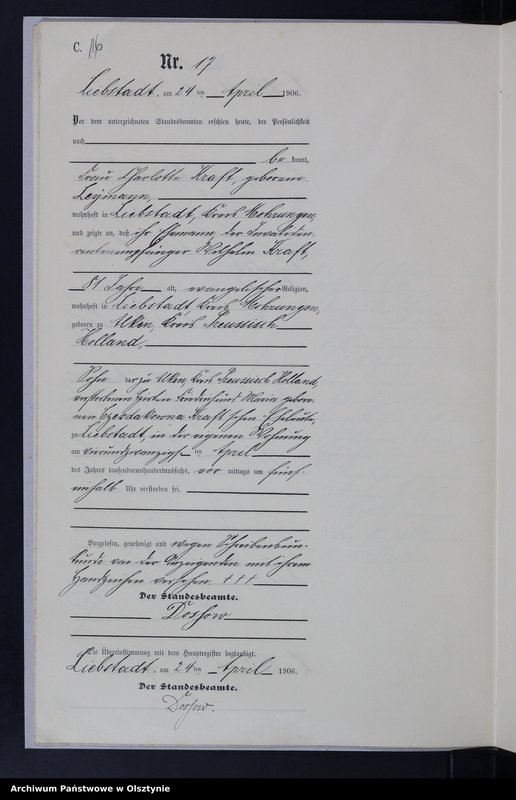 C. 16
Nr. 17
Liebstadt, am 24 ten April 1906.
Vor dem unterzeichneten Standesbeamten erschien heute, der Persönlichkeit
nach
be kannt,
Frau Charlotte Kraft, geborene
wohnhaft in Liebstadt, Kreis Mohrungen,
und zeigte an, daß ihr Ehemann, der Invaliden-
rentenempfänger Wilhelm Kraft,
Jahre alt, evangelischer Religion,
wohnhaft in Liebstadt, Kreis Mohrungen,
geboren zu Kreis Preussisch
Holland,
Sohn der zu Kreis Preussisch Holland,
verstorbenen Hirten Friedrich und Maria gebore-
nen Kraft'schen Eheleute,
zu Liebstadt, in der eigenen Wohnung
am vierundzwanzigsten April
des Jahres tausendneunhundertundsechs, vor mittags um fünf-
einhalb Uhr verstorben sei.
Vorgelesen, genehmigt und wegen Schreibensun-
kunde von der Anzeigenden mit ihrem
Handzeichen versehen. † † †
Der Standesbeamte.
Die Übereinstimmung mit dem Hauptregister beglaubigt.
Liebstadt, am 24 ten April 1906.
Der Standesbeamte.
Archiwum Państwowe w Olsztynie